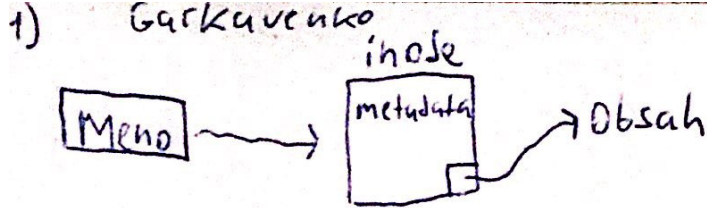 1) Garkavenko
inode
Meno
metadata
Obsah